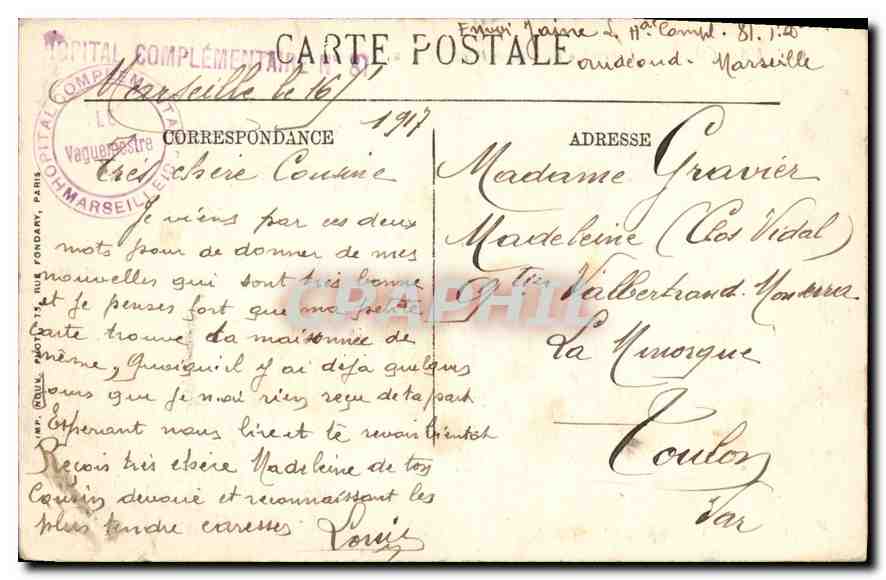 Envoi Jaine L. Hal Compl. 81.
HOPITAL COMPLÉMENTAIRE N° 81
CARTE POSTALE
Marseille
HOPITAL COMPLÉMENTAIRE
Le
Vaguemestre
MARSEILLE
Marseille le 16
1917
CORRESPONDANCE
Très chère Cousine
Je viens par ces deux
mots pour de donner de mes
nouvelles qui sont très bonne
et Je penses fort que ma petite
carte trouve ta maisonnée de
même, Quoiqu'il y ai déja quelques
jours que Je n'ai rien reçu de ta part
Esperant nous lire et te revoir bientôt
Reçois très chère Madeleine de ton
Cousin devoué et reconnaissant les
plus tendre caresses Louis
ADRESSE
Madame Gravier
Madeleine (Clos Vidal)
Qtier Valbertrand
La Minorque
Toulon
Var
IMP. NOUV. PHOT. 75, RUE FONDARY, PARIS
CPAPHIL